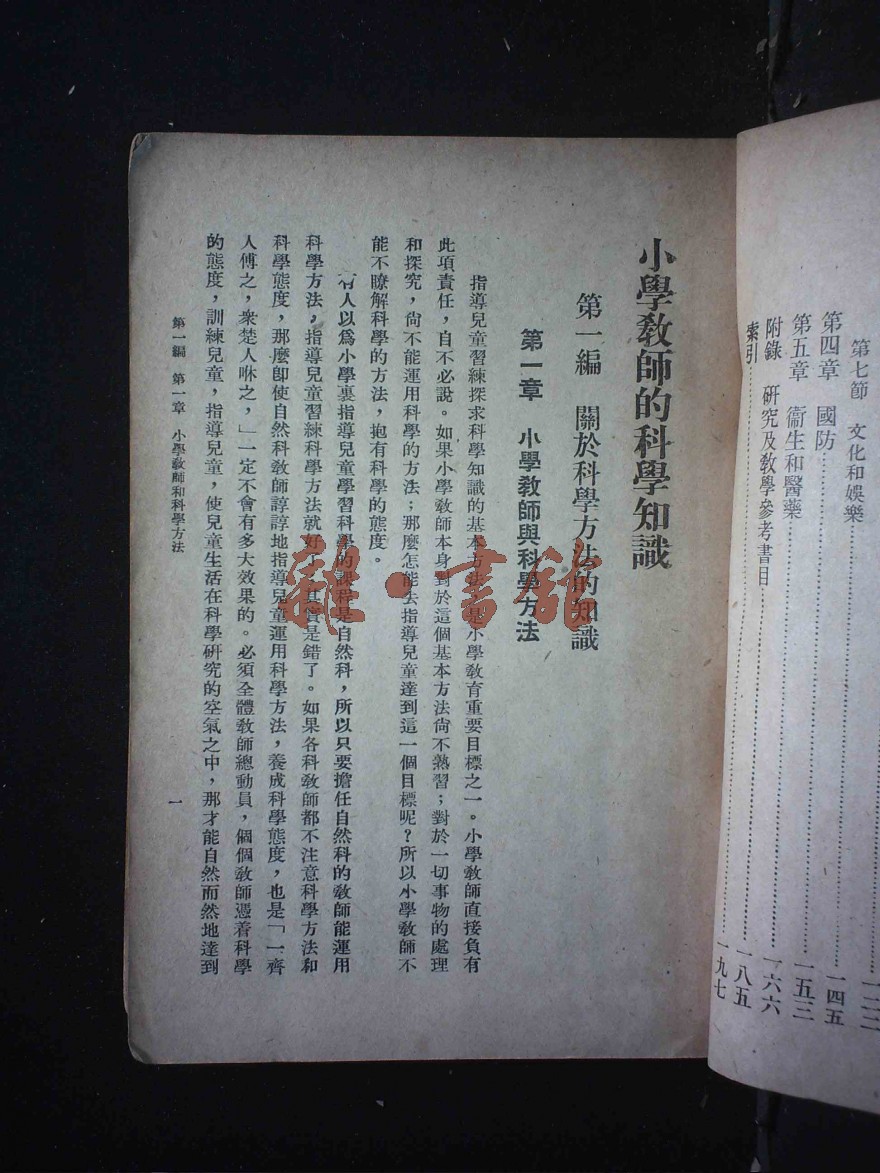 第七節　文化和娛樂
第四章　國防……一四五
第五章　衞生和醫藥……一五三
附錄　研究及教學參考書目……一六六
索引……一八五
一九七
小學教師的科學知識
第一編　關於科學方法的知識
第一章　小學教師與科學方法
指導兒童習練探求科學知識的基本方法，是小學教育重要目標之一。小學教師直接負有
此項責任，自不必說。如果小學教師本身對於這個基本方法尙不熟習；對於一切事物的處理
和探究，尙不能運用科學的方法；那麼怎能去指導兒童達到這一個目標呢？所以小學教師不
能不瞭解科學的方法，抱有科學的態度。
有人以爲小學裏指導兒童學習科學的課程是自然科，所以只要擔任自然科的教師能運用
科學方法，指導兒童習練科學方法就好了，其實是錯了。如果各科教師都不注意科學方法和
科學態度，那麼卽使自然科教師諄諄地指導兒童運用科學方法，養成科學態度，也是「一齊
人傅之，衆楚人咻之，」一定不會有多大效果的。必須全體教師總動員，個個教師憑着科學
的態度，訓練兒童，指導兒童，使兒童生活在科學研究的空氣之中，那才能自然而然地達到
第一編　第一章　小學教師和科學方法
一
雜·書館